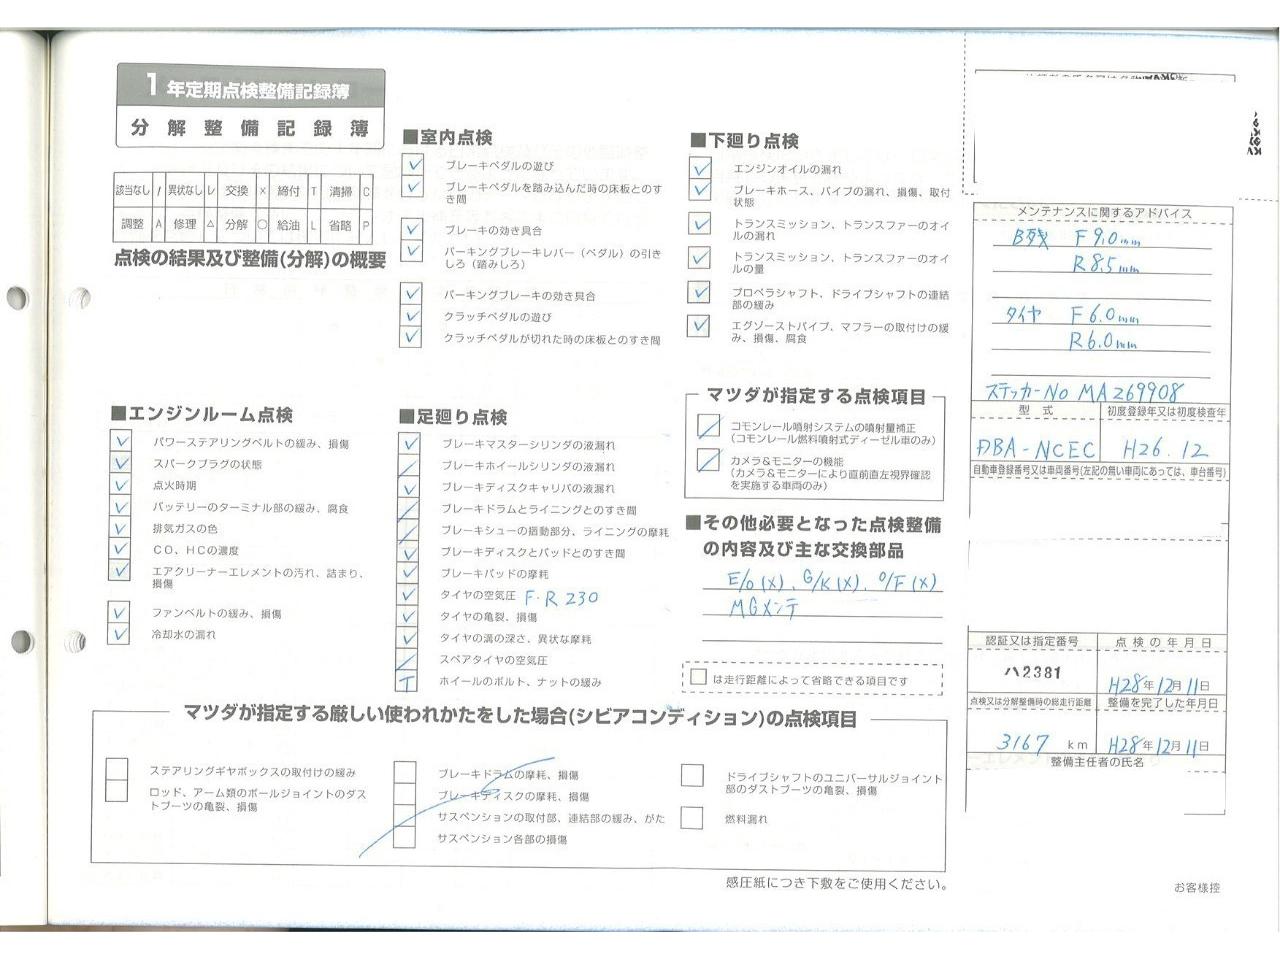 1年定期点検整備記録簿
分解整備記録簿
該当なし / 異状なし レ 交換 × 締付 T 清掃 C
調整 A 修理 △ 分解 ○ 給油 L 省略 P
点検の結果及び整備(分解)の概要
■エンジンルーム点検
パワーステアリングベルトの緩み、損傷
スパークプラグの状態
点火時期
バッテリーのターミナル部の緩み、腐食
排気ガスの色
CO、HCの濃度
エアクリーナーエレメントの汚れ、詰まり、
損傷
ファンベルトの緩み、損傷
冷却水の漏れ
■室内点検
ブレーキペダルの遊び
ブレーキペダルを踏み込んだ時の床板とのす
き間
ブレーキの効き具合
パーキングブレーキレバー(ペダル)の引き
しろ(踏みしろ)
パーキングブレーキの効き具合
クラッチペダルの遊び
クラッチペダルが切れた時の床板とのすき間
■足廻り点検
ブレーキマスターシリンダの液漏れ
ブレーキホイールシリンダの液漏れ
ブレーキディスクキャリパの液漏れ
ブレーキドラムとライニングとのすき間
ブレーキシューの摺動部分、ライニングの摩耗
ブレーキディスクとパッドとのすき間
ブレーキパッドの摩耗
タイヤの空気圧 F・R 230
タイヤの亀裂、損傷
タイヤの溝の深さ、異状な摩耗
スペアタイヤの空気圧
T ホイールのボルト、ナットの緩み
■下廻り点検
エンジンオイルの漏れ
ブレーキホース、パイプの漏れ、損傷、取付
状態
トランスミッション、トランスファーのオイ
ルの漏れ
トランスミッション、トランスファーのオイ
ルの量
プロペラシャフト、ドライブシャフトの連結
部の緩み
エグゾーストパイプ、マフラーの取付けの緩
み、損傷、腐食
マツダが指定する点検項目
コモンレール噴射システムの噴射量補正
(コモンレール燃料噴射式ディーゼル車のみ)
カメラ&モニターの機能
(カメラ&モニターにより直前直左視界確認
を実施する車両のみ)
■その他必要となった点検整備
の内容及び主な交換部品
E/O(×)、G/K(×)、O/F(×)
MGメンテ
は走行距離によって省略できる項目です
メンテナンスに関するアドバイス
B残 F 9.0mm
R 8.5mm
タイヤ F 6.0mm
R 6.0mm
ステッカーNo MA269908
型式 初度登録年又は初度検査年
DBA-NCEC H26.12
自動車登録番号又は車両番号(左記の無い車両にあっては、車台番号)
認証又は指定番号 点検の年月日
ハ2381 H28年12月11日
点検又は分解整備時の総走行距離 整備を完了した年月日
3167 km H28年12月11日
整備主任者の氏名
マツダが指定する厳しい使われかたをした場合(シビアコンディション)の点検項目
ステアリングギヤボックスの取付けの緩み
ロッド、アーム類のボールジョイントのダス
トブーツの亀裂、損傷
ブレーキドラムの摩耗、損傷
ブレーキディスクの摩耗、損傷
サスペンションの取付部、連結部の緩み、がた
サスペンション各部の損傷
ドライブシャフトのユニバーサルジョイント
部のダストブーツの亀裂、損傷
燃料漏れ
感圧紙につき下敷をご使用ください。
お客様控